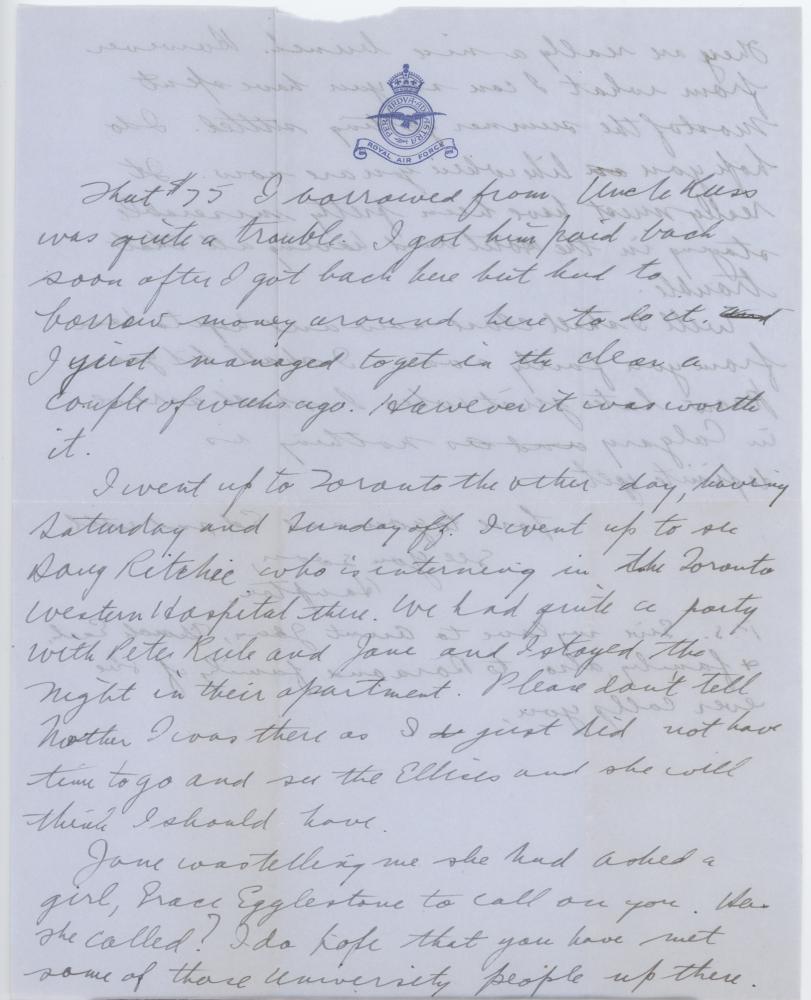 PER ARDVA AD ASTRA
ROYAL AIR FORCE
That $75 I borrowed from Uncle Russ
was quite a trouble. I got him paid back
soon after I got back here but had to
borrow money around here to do it and
I just managed to get in the clear a
couple of weeks ago. However it was worth
it.
I went up to Toronto the other day, having
Saturday and Sunday off. I went up to see
Doug Ritchie who is interning in the Toronto
Western Hospital there. We had quite a party
with Peter Rule and Jane and I stayed the
night in their apartment. Please don't tell
Mother I was there as I just did not have
time to go and see the Ellises and she will
think I should have.
Jane was telling me she had asked a
girl, Grace Egglestone to call on you. Has
she called? I do hope that you have met
some of those University people up there.